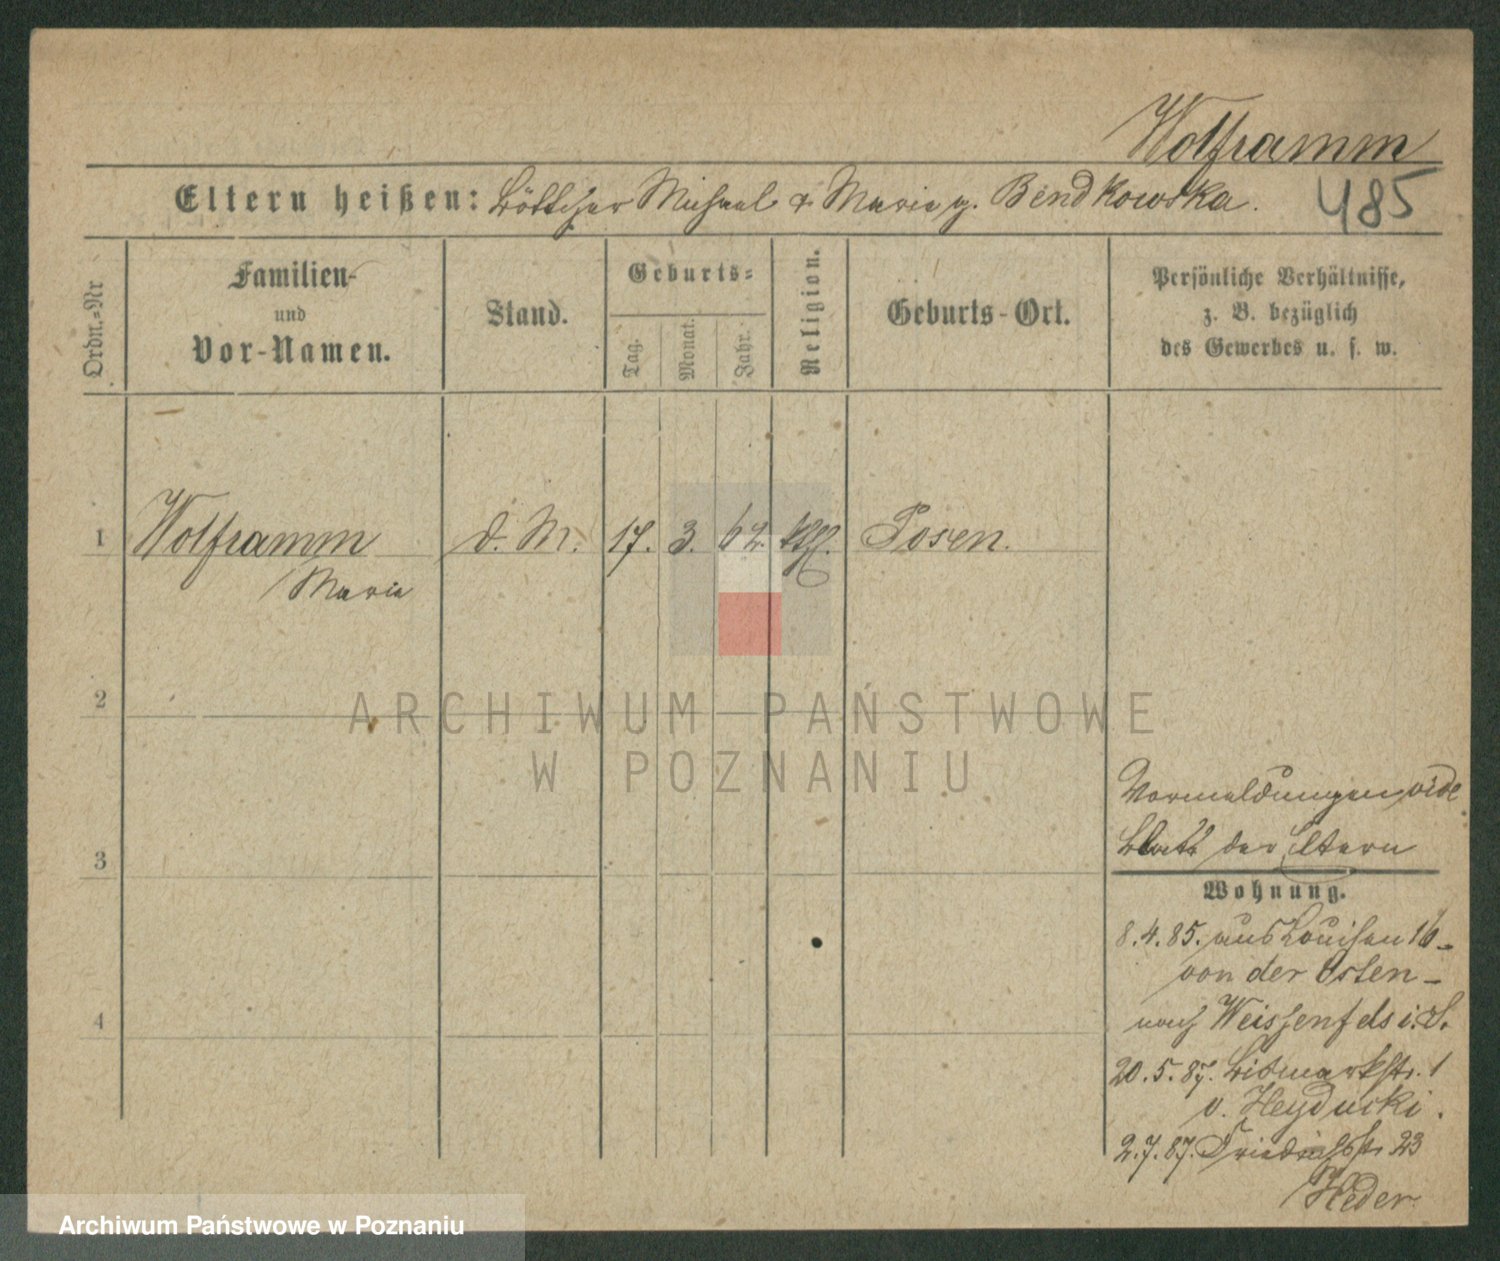 Wolframm
Eltern heißen: Böttcher Michael & Marie g. Bendkowska.
485
Ordn.-Nr
Familien-
und
Vor-Namen.
Stand.
Geburts-
Tag.
Monat.
Jahr.
Religion.
Geburts-Ort.
Persönliche Verhältnisse,
z. B. bezüglich
des Gewerbes u. s. w.
1 Wolframm d. M. 17. 3. 62. kth. Posen.
Marie
2
3
4
Vormeldungen vide
Blatt der Eltern
Wohnung.
8.4.85. aus Louisen 16-
von der Osten-
nach Weissenfels i. S.
20.5.87. Bismarkstr. 1
v. Heyducki.
2.7.87. Friedrichsstr 23
Heder
ARCHIWUM PAŃSTWOWE
W POZNANIU
Archiwum Państwowe w Poznaniu